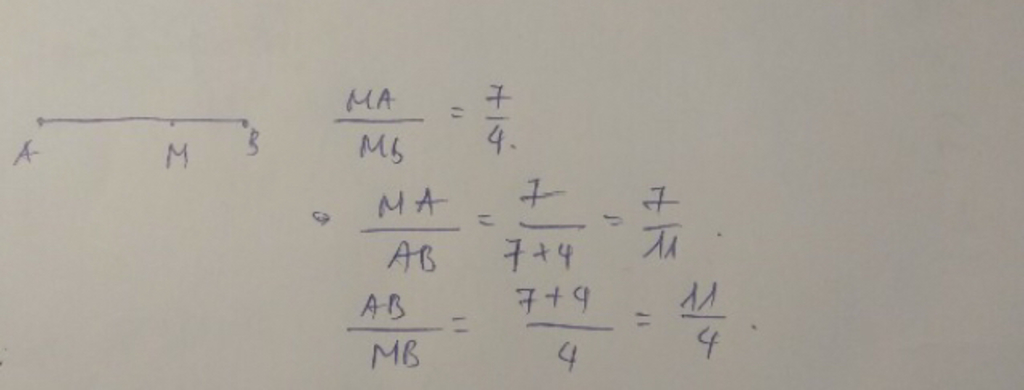 A M B
MA/MB = 7/4.
MA/AB = 7/(7+4) = 7/11.
AB/MB = (7+4)/4 = 11/4.